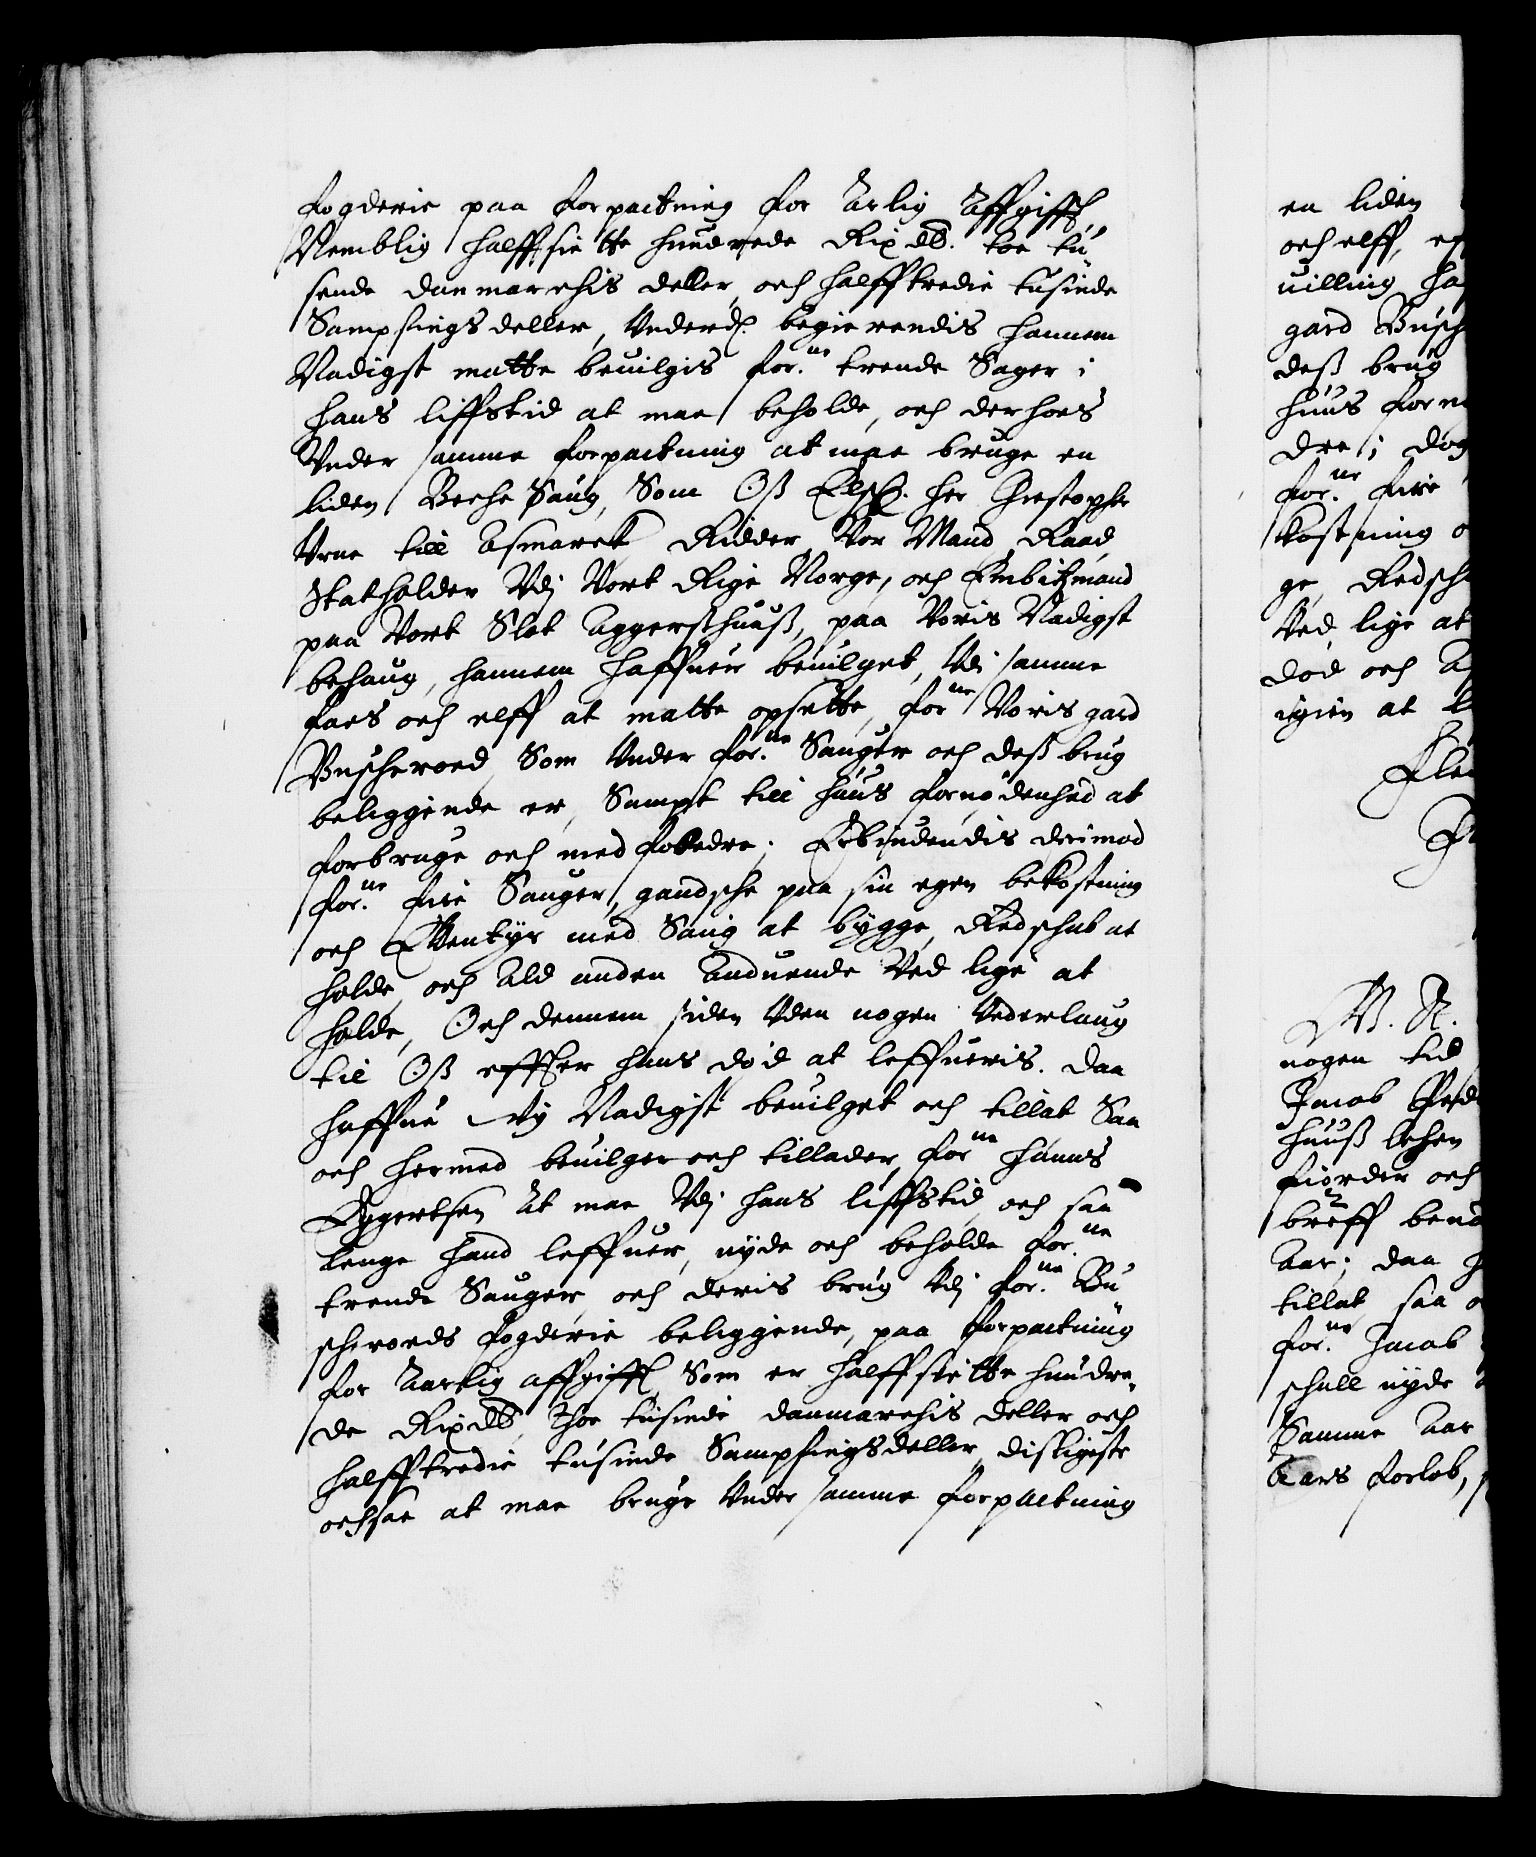 fogderie paa forpactning for Aarlig Affgifft,
Nemblig halffsiette hundrede Rixdlr. toe tu
sende danmarchis deller, och halfftredie tusinde
Sampfings deller, Underd. begierendis hannem
Nadigst matte beuilgis for.ne trende Sager i
hans liffstid at mae beholde, och derhoes
Under samme forpactning at mae bruge en
liden Beche Saug, Som Oß Elsch. her Christopher
Urne till Asmarck Ridder, Vor Mand, Raad,
Statholder Udj Vort Rige Norge, och Embitzmand
paa Vort Slot Aggershuuß, paa Voris Nadigst
behaug, hannem haffuer beuilget, Udi samme
faes och elff at matte opsette, for.ne Voris gard
Buscheroed, Som Under for.ne Sauger och deß brug
beliggende er, Sampt till huus fornødenhed at
forbruge och med forbedre; Erbiudendis derimod
for.ne fire Sauger, gandsche paa sin egen bekostning
och Euentyr med Saug at bygge, Redschab at
holde, och Ald anden Anduende Ved lige at
holde, Och dennem siden Uden nogen Vederlaug
til Oß effter hans død at leffueris. Daa
haffue Wy Nadigst beuilget och tillat Saa
och hermed beuilger och tillader, for.ne Hanns
Eggertsen At mae Udj hans liffstid, och saa
lenge hand leffuer, nyde och beholde for.ne
trende Sauger, och deris brug Udj for.ne Bu
scherords fogderie beliggende, paa forpactning
for Aarlig affgifft, Som er halffsiette hundre,
de Rixdlr, Thoe tusinde danmarchis deller och
halfftredie tusinde Sampfingsdeller, disligeste
ochsaa at mae bruge Under samme forpactning
en liden
och elff,
uilling
gard Busch
deß brug
huus forn
dre; dog
for.ne fire
kostning
ge, Redsch
Ved lige at
død och
igien at
W. A.
nogen tid
Jacob
huuß lehen
fiorder och
breff
Aar; daa
tillat saa
for.ne Jacob
schall nyde
Samme Aar
Aars forlob,